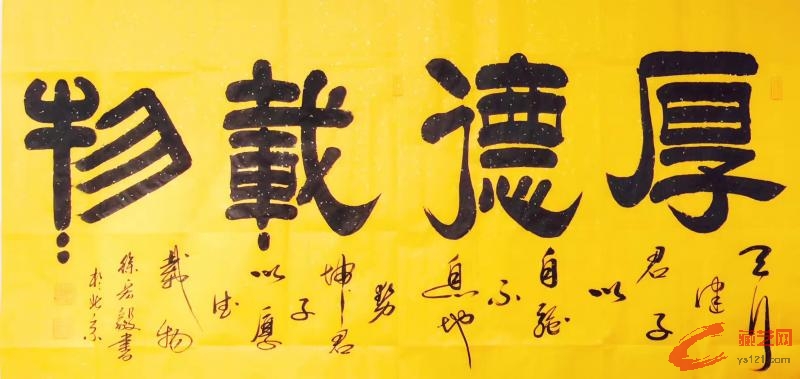 厚德載物
天行
健
君子
以
自強
不
息地
勢
坤君
子
以厚
德
載物
徐宏毅書
於北京
藏艺网